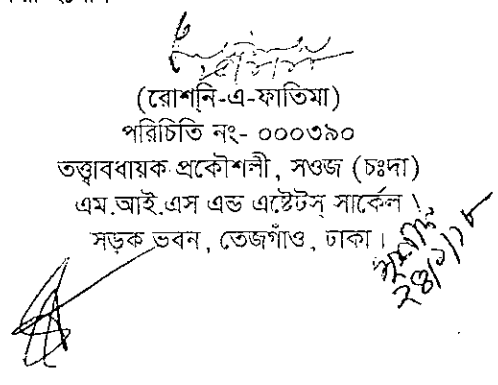 (রোশনি-এ-ফাতিমা)
পরিচিতি নং- ০০০৩৯০
তত্ত্বাবধায়ক প্রকৌশলী, সওজ (চঃদা)
এম.আই.এস এন্ড এষ্টেটস্ সার্কেল।
সড়ক ভবন, তেজগাঁও, ঢাকা।